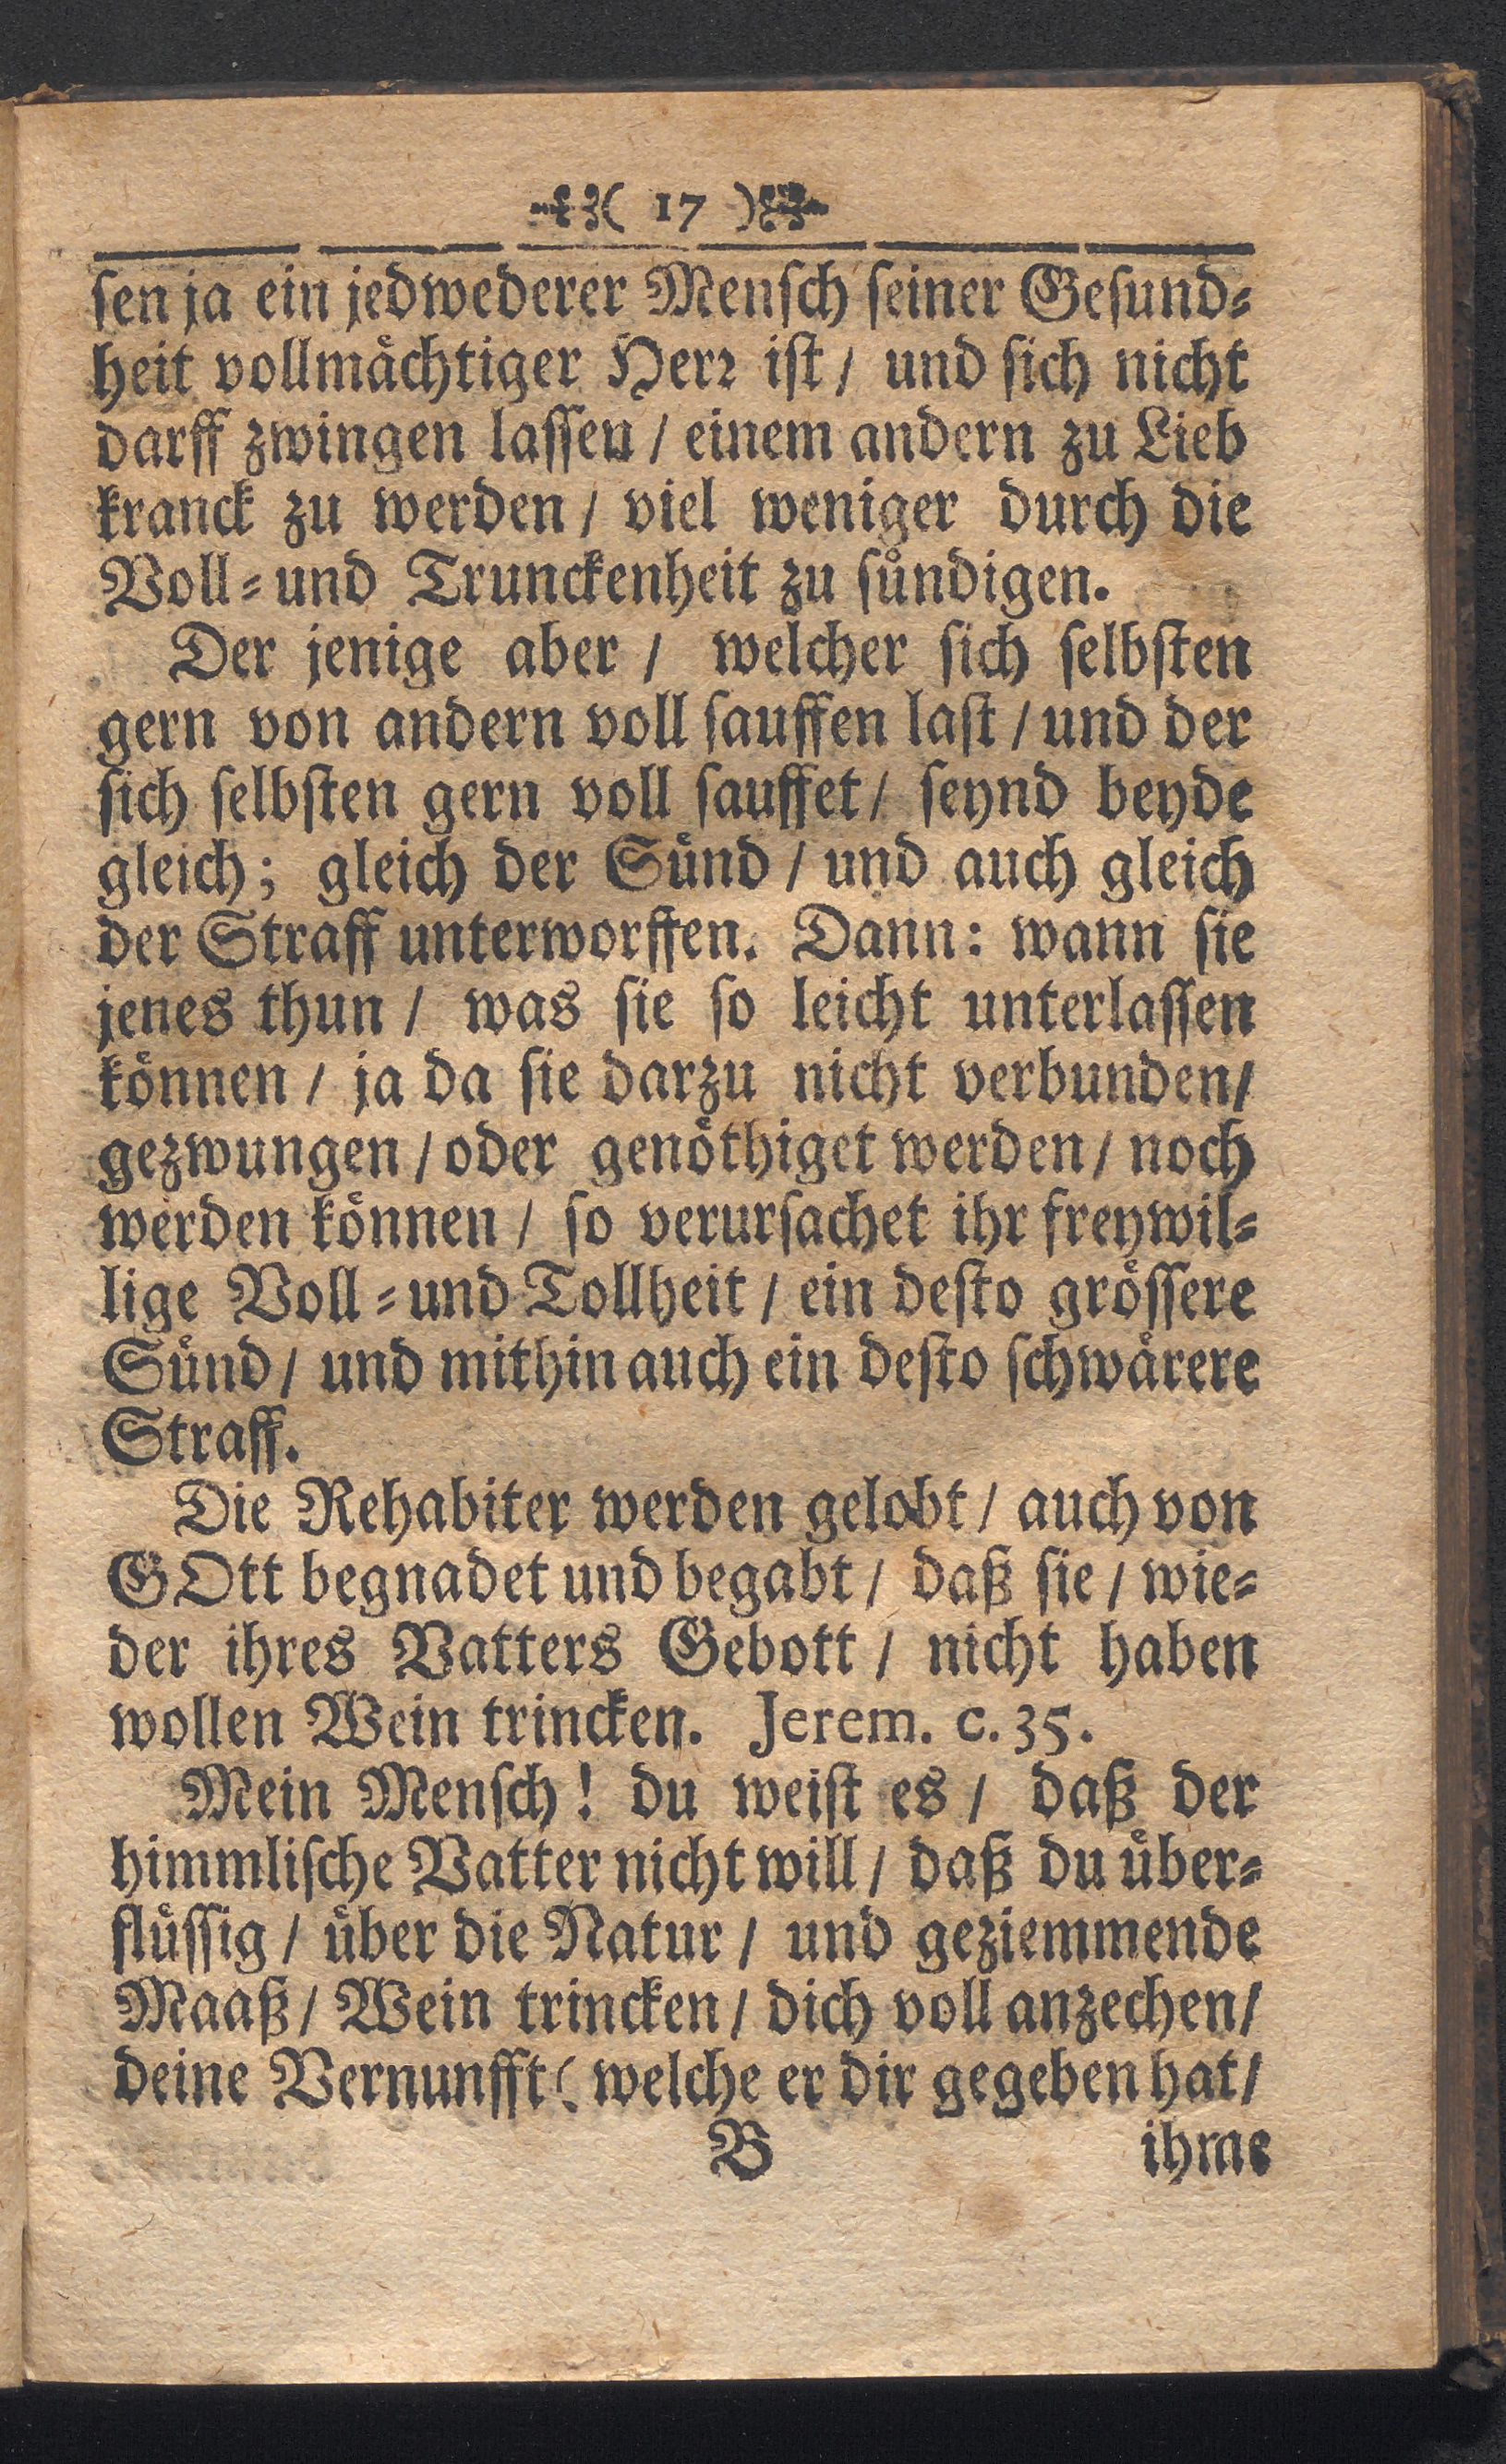 ( 17 )
ſen ja ein jedwederer Menſch ſeiner Geſund⸗
heit vollmaͤchtiger Herꝛ iſt / und ſich nicht
darff zwingen laſſen / einem andern zu Lieb
kranck zu werden / viel weniger durch die
Voll⸗ und Trunckenheit zu ſuͤndigen.
Der jenige aber / welcher ſich ſelbſten
gern von andern voll ſauffen laſt / und der
ſich ſelbſten gern voll ſauffet / ſeynd beyde
gleich; gleich der Suͤnd / und auch gleich
der Straff unterworffen. Dann: wann ſie
jenes thun / was ſie ſo leicht unterlaſſen
koͤnnen / ja da ſie darzu nicht verbunden /
gezwungen / oder genoͤthiget werden / noch
werden koͤnnen / ſo verurſachet ihr freywil⸗
lige Voll⸗ und Tollheit / ein deſto groͤſſere
Suͤnd / und mithin auch ein deſto ſchwaͤrere
Straff.
Die Rehabiter werden gelobt / auch von
GOtt begnadet und begabt / daß ſie / wie⸗
der ihres Vatters Gebott / nicht haben
wollen Wein trincken. Jerem. c. 35.
Mein Menſch! du weiſt es / daß der
himmliſche Vatter nicht will / daß du uͤber⸗
fluͤſſig / uͤber die Natur / und geziemmende
Maaß / Wein trincken / dich voll anzechen /
deine Vernunfft ( welche er dir gegeben hat /
B ihme